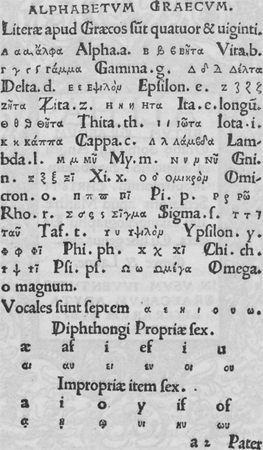 ALPHABETVM GRAECVM.
Literæ apud Græcos sũt quatuor & uiginti.
Α α α. ἄλφα. Alpha. a. Β β ϐ βῆτα Vita. b.
Γ γ ς γάμμα Gamma. g. Δ δ Δ Δέλτα
Delta. d. Ε ε ἐψιλόν Epsilon. e. Ζ ζ ξ
ζῆτα Zita. z. Η κ η ἦτα Ita. e. longũ.
Θ θ ϑ θῆτα Thita. th. Ι ι ἰῶτα Iota. i.
Κ κ κάππα Cappa. c. Λ λ λάμβδα Lam-
bda. l. Μ μ μῦ My. m. Ν ν ν νῦ Gni.
n. Ξ ξ ξῖ Xi. x. Ο ο ὀμικρόν Omi-
cron. o. Π π ϖ πῖ Pi. p. Ρ ρ ῥῶ
Rho. r. Σ σ ς σῖγμα Sigma. s. Τ τ ῖ
ταῦ Taf. t. Υ υ ὐψιλόν Ypsilon. y.
Φ φ φῖ Phi. ph. Χ χ χῖ Chi. ch.
Ψ ψ τῖ Psi. ps. Ω ω Ωμέγα Omega.
o magnum.
Vocales sunt septem α ε η ι ο υ ω.
Diphthongi Propriæ sex.
æ af i ef i u
αι αυ ει ευ οι ου
Impropriæ item sex.
a i o y if of
ᾳ ῃ ῳ υι ηυ ωυ
a 2 Pater